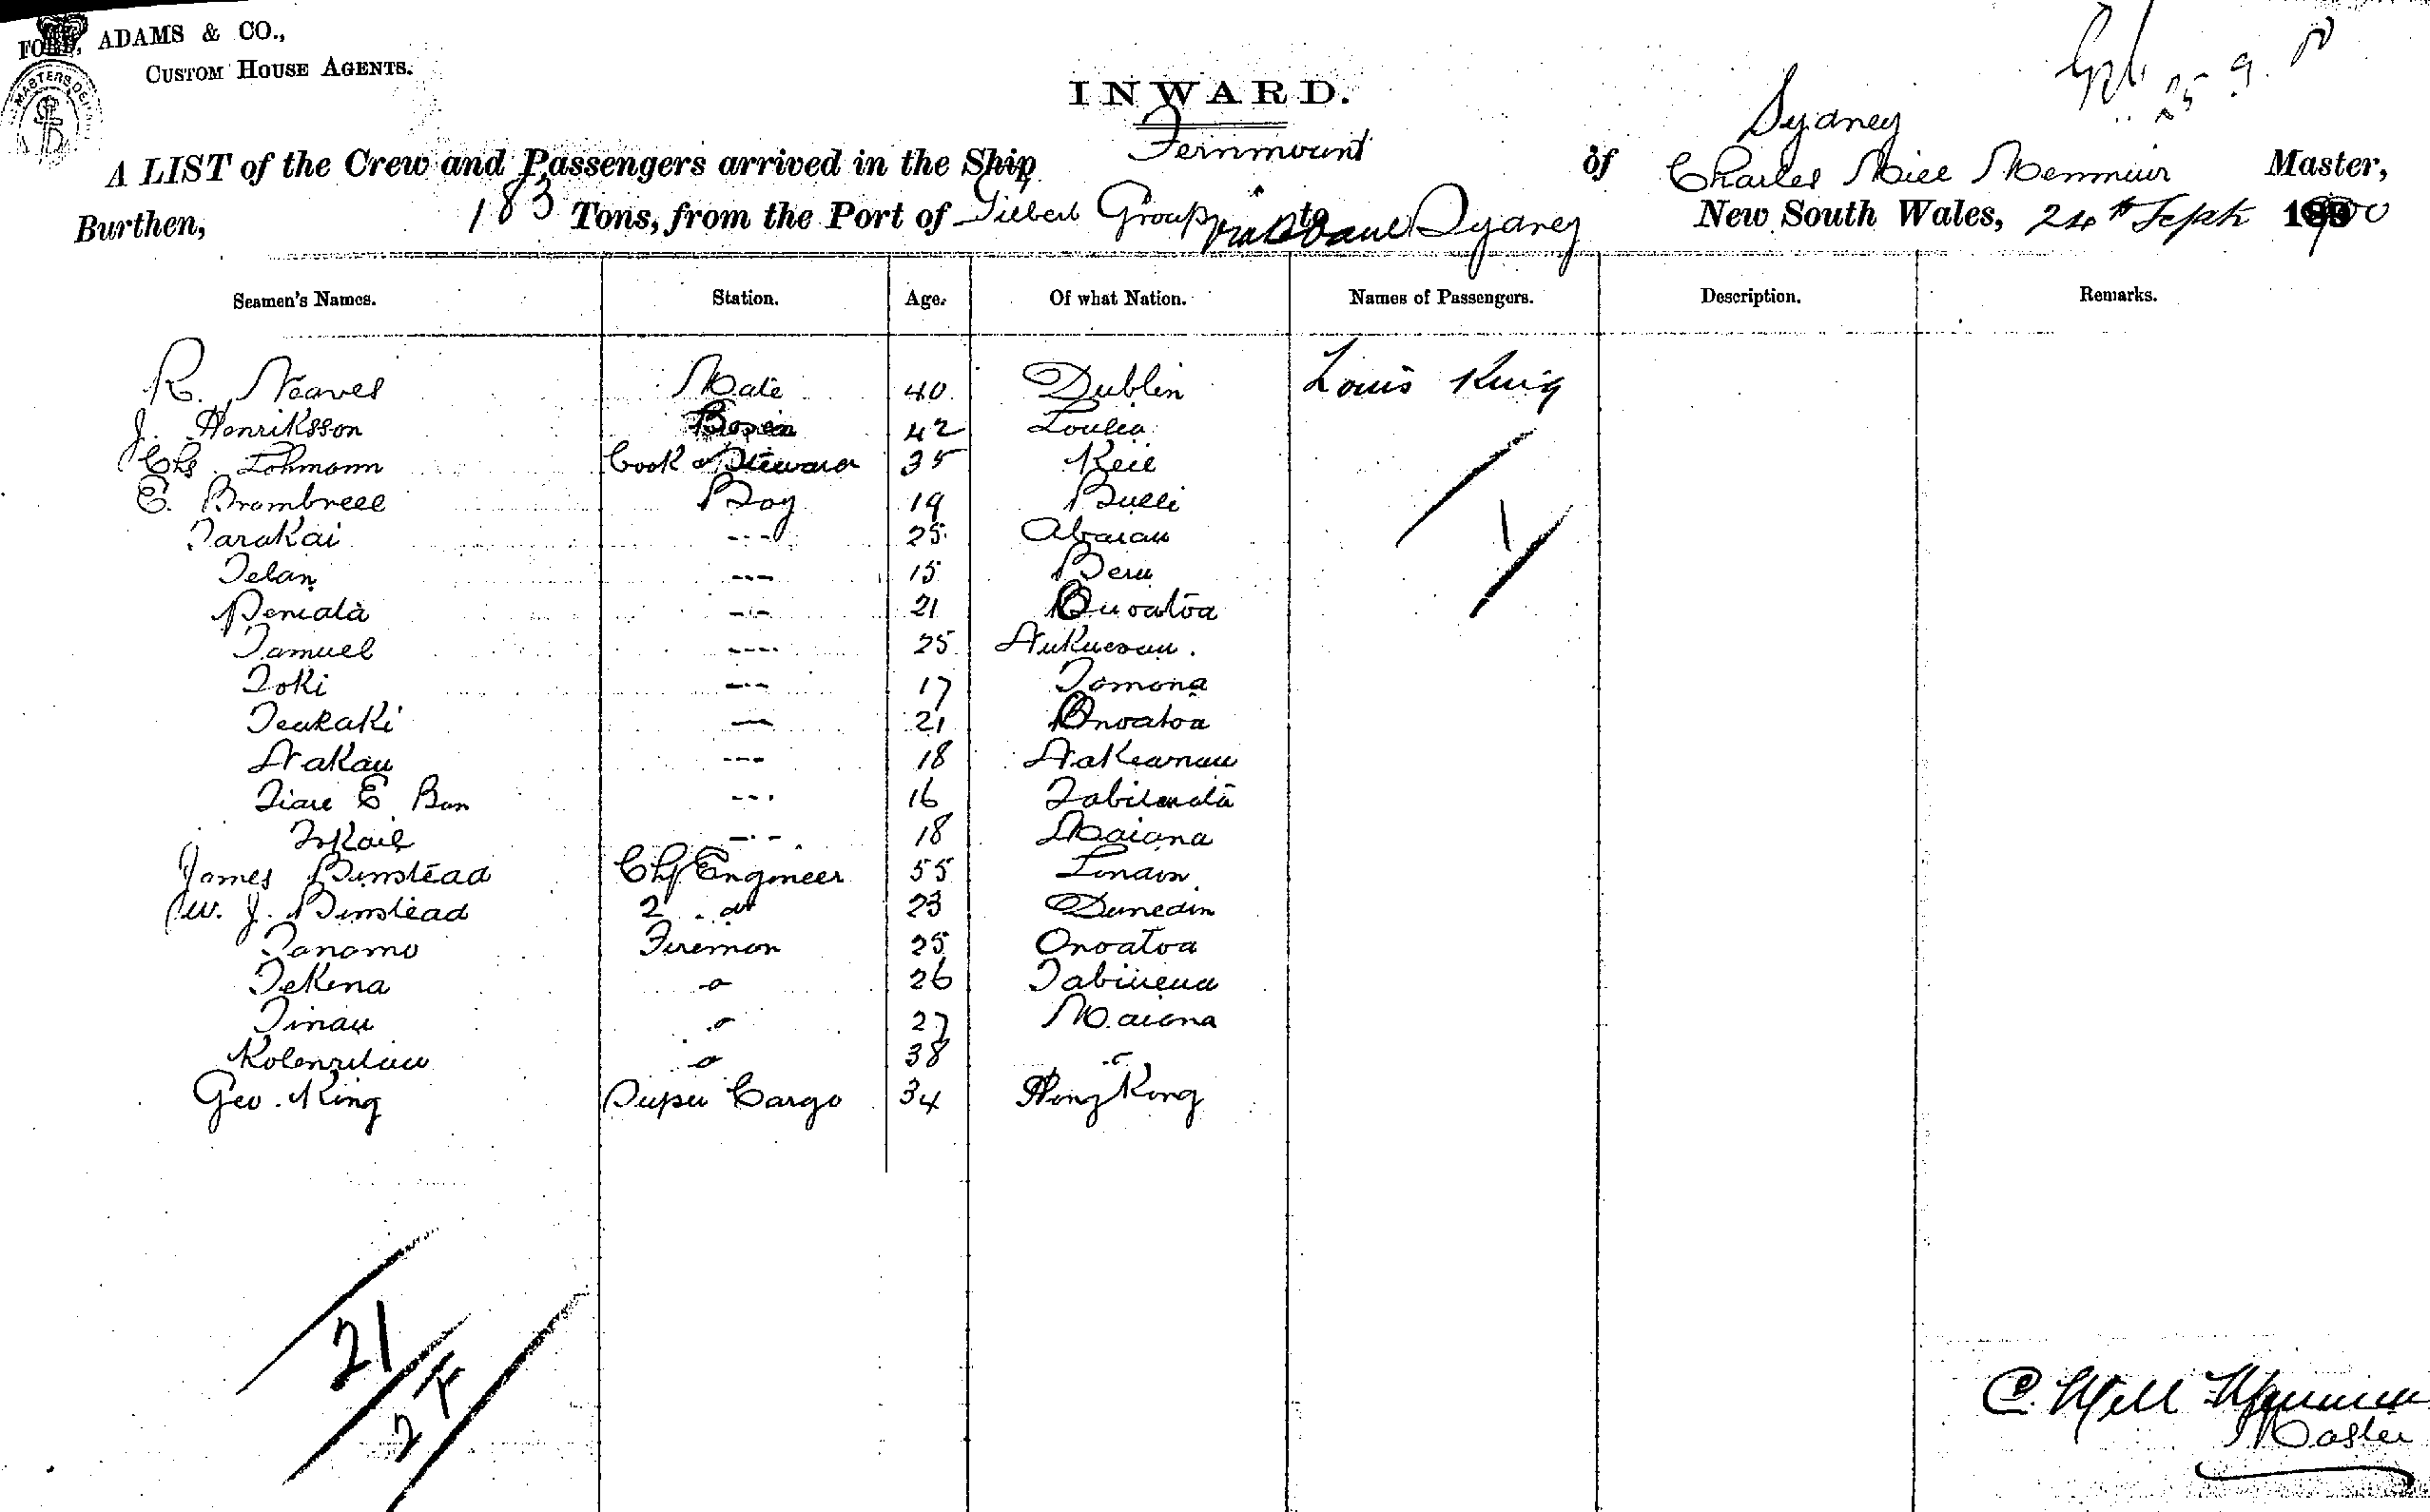 FORD, ADAMS & CO.,
CUSTOM HOUSE AGENTS.
MASTERS DE
INWARD.
25 . 9 .
Sydney
A LIST of the Crew and Passengers arrived in the Ship Fernmount of Charles Mill Menmuir Master,
Burthen, 183 Tons, from the Port of Gilbert Group to Sydney New South Wales, 24th Septr 1900
Seamen's Names. Station. Age. Of what Nation. Names of Passengers. Description. Remarks.
R. Neaves Mate 40 Dublin Louis King
J. Henriksson Bosen 42 Louisa
Chs. Lohmann Cook & Steward 35 Keil
E. Brombreee Boy 19 Bulli
Tarakai --- 25 Abaiau
Telan --- 15 Beru
Peniata --- 21 Onoatoa
Samuel ---- 25
Toki --- 17 Tomona
Teukaki — 21 Onoatoa
Nakau --- 18
Tiare E Ban --- 16
--- 18 Maiana
James Binstead Chf Engineer 55 London
W. J. Binstead 2 do 23 Dunedin
Tanomo Fireman 25 Onoatoa
Tekena o 26
Tinau o 27 Maiana
o 38
Geo. King Super Cargo 34 Hong Kong
1
21
24
C. Mill Menmuir
Master